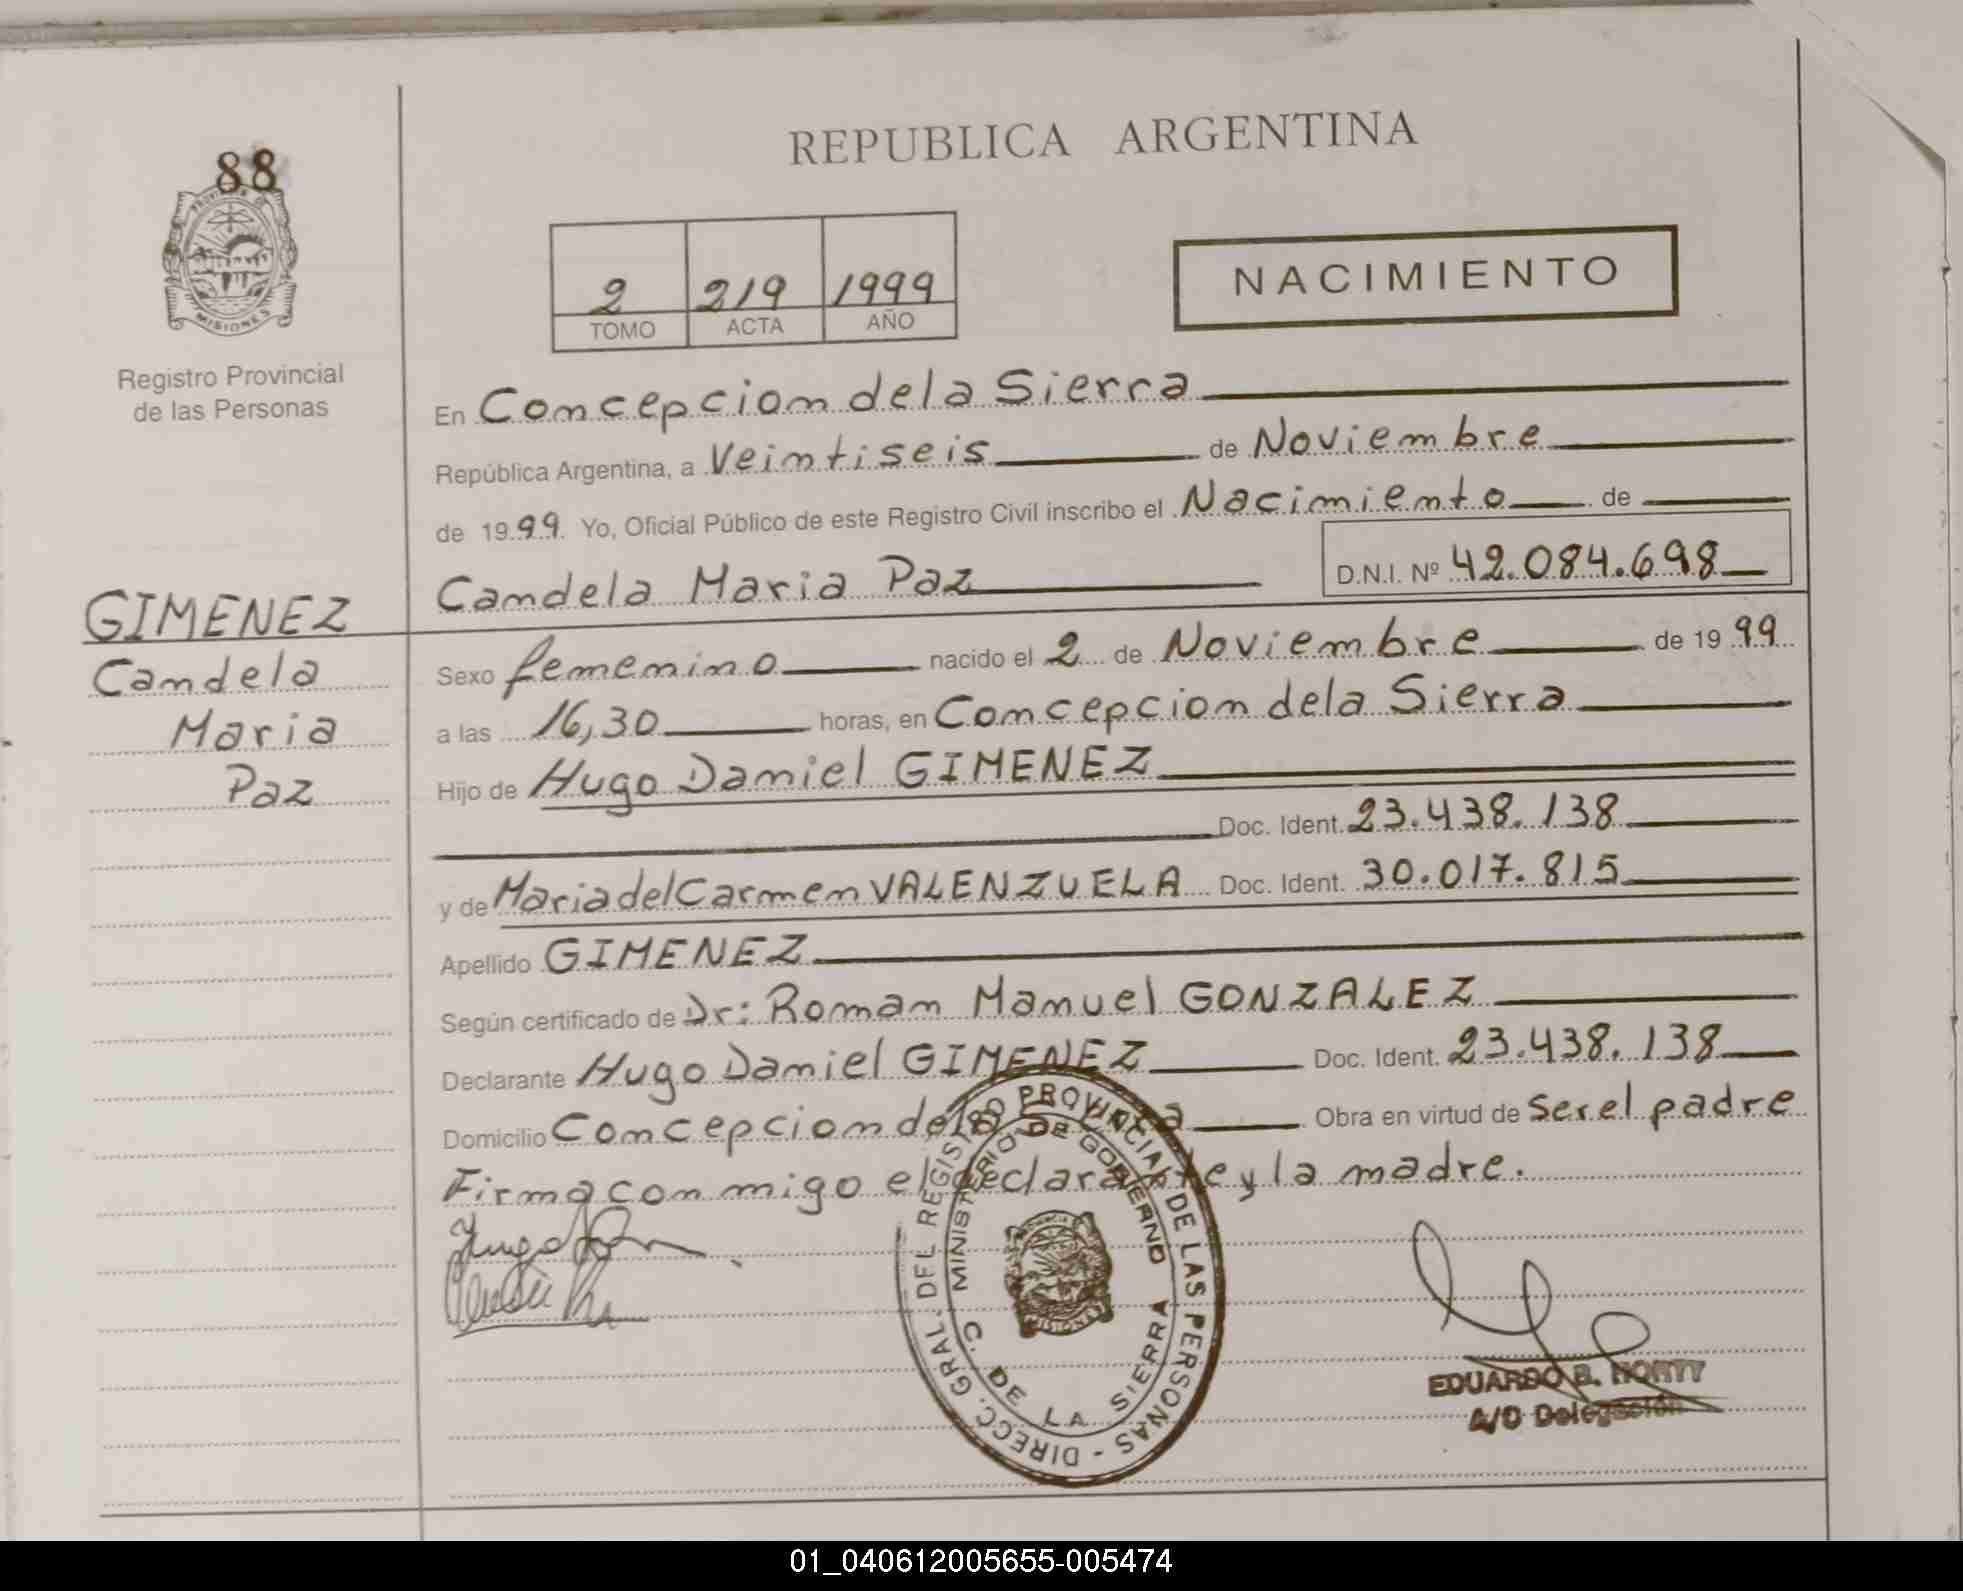 88
PROVINCIA DE
MISIONES
Registro Provincial
de las Personas
GIMENEZ
Candela
Maria
Paz
REPUBLICA ARGENTINA
2 219 1999
TOMO ACTA AÑO
NACIMIENTO
En Concepcion de la Sierra
República Argentina, a Veintiseis de Noviembre
de 1999 Yo, Oficial Público de este Registro Civil inscribo el Nacimiento de
Candela Maria Paz D.N.I. Nº 42.084.698
Sexo femenino nacido el 2 de Noviembre de 1999
a las 16,30 horas, en Concepcion de la Sierra
Hijo de Hugo Daniel GIMENEZ
Doc. Ident. 23.438.138
y de Maria del Carmen VALENZUELA Doc. Ident. 30.017.815
Apellido GIMENEZ
Según certificado de Dr: Roman Manuel GONZALEZ
Declarante Hugo Daniel GIMENEZ Doc. Ident. 23.438.138
Domicilio Concepcion de la Sierra Obra en virtud de Ser el padre
Firma con migo el declarante y la madre.
DIRECC. GRAL. DEL REGISTRO PROVINCIAL DE LAS PERSONAS -
MINISTERIO DE GOBIERNO
C. DE LA SIERRA
MISIONES
EDUARDO B.
A/C Delegación
01_040612005655-005474